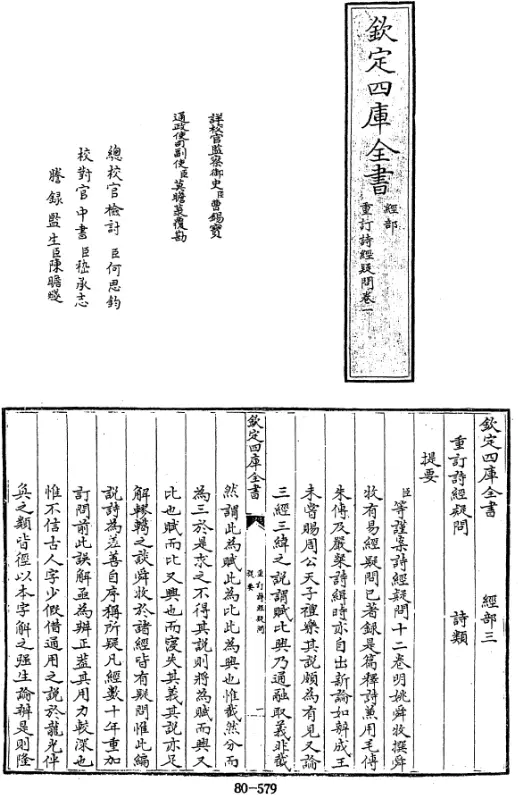 欽定四庫全書
經部
重訂詩經疑問卷一
詳校官監察御史臣曹錫寶
通政使司副使臣莫瞻菉覆勘
總校官檢討臣何思鈞
校對官中書臣嵇承志
謄錄監生臣陳瞻
欽定四庫全書 經部三
重訂詩經疑問 詩類
提要
臣等謹案詩經疑問十二卷明姚舜牧撰舜
牧有易經疑問已著錄是篇釋詩兼用毛傳
朱傳及嚴粲詩緝時亦自出新論如辨成王
未嘗賜周公天子禮樂其說頗為有見又論
三經三緯之說謂賦比興乃通融取義非截
欽定四庫全書
重訂詩經疑問
提要
一
然謂此為賦此為比此為興也惟截然分而
為三於是求之不得其說則將為賦而興又
比也賦而比又興也而寖失其義其說亦足
解轇轕之談舜牧於諸經皆有疑問惟此編
說詩為差善自序稱所疑凡經數十年重加
訂問前此誤解亟為辨正蓋其用力較深也
惟不信古人字少假借通用之說於龍光伴
奐之類皆徑以本字解之強生論辨是則隆
80-579